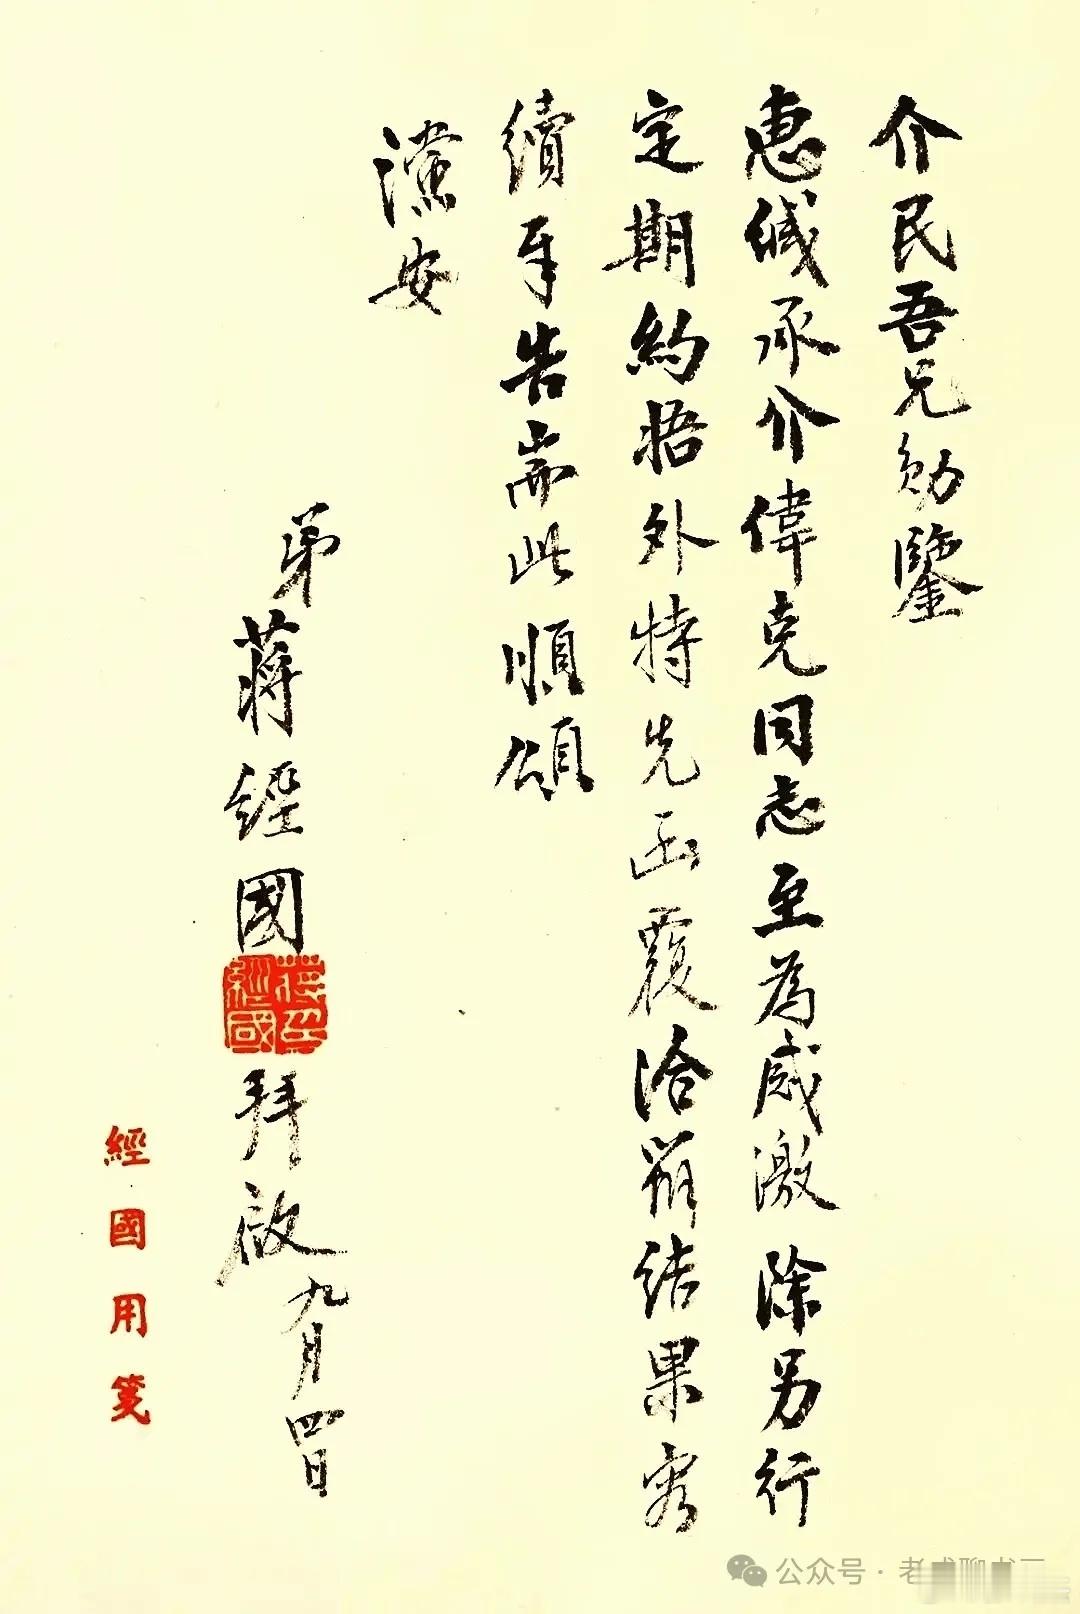 介民吾兄勛鑒
惠緘承介偉克同志至為感激除另行
定期約晤外特先函覆洽辦結果容
續奉告耑此順頌
黨安
弟蔣經國拜啟九月四日
蔣經國印
經國用箋
公众号·老戎聊书画